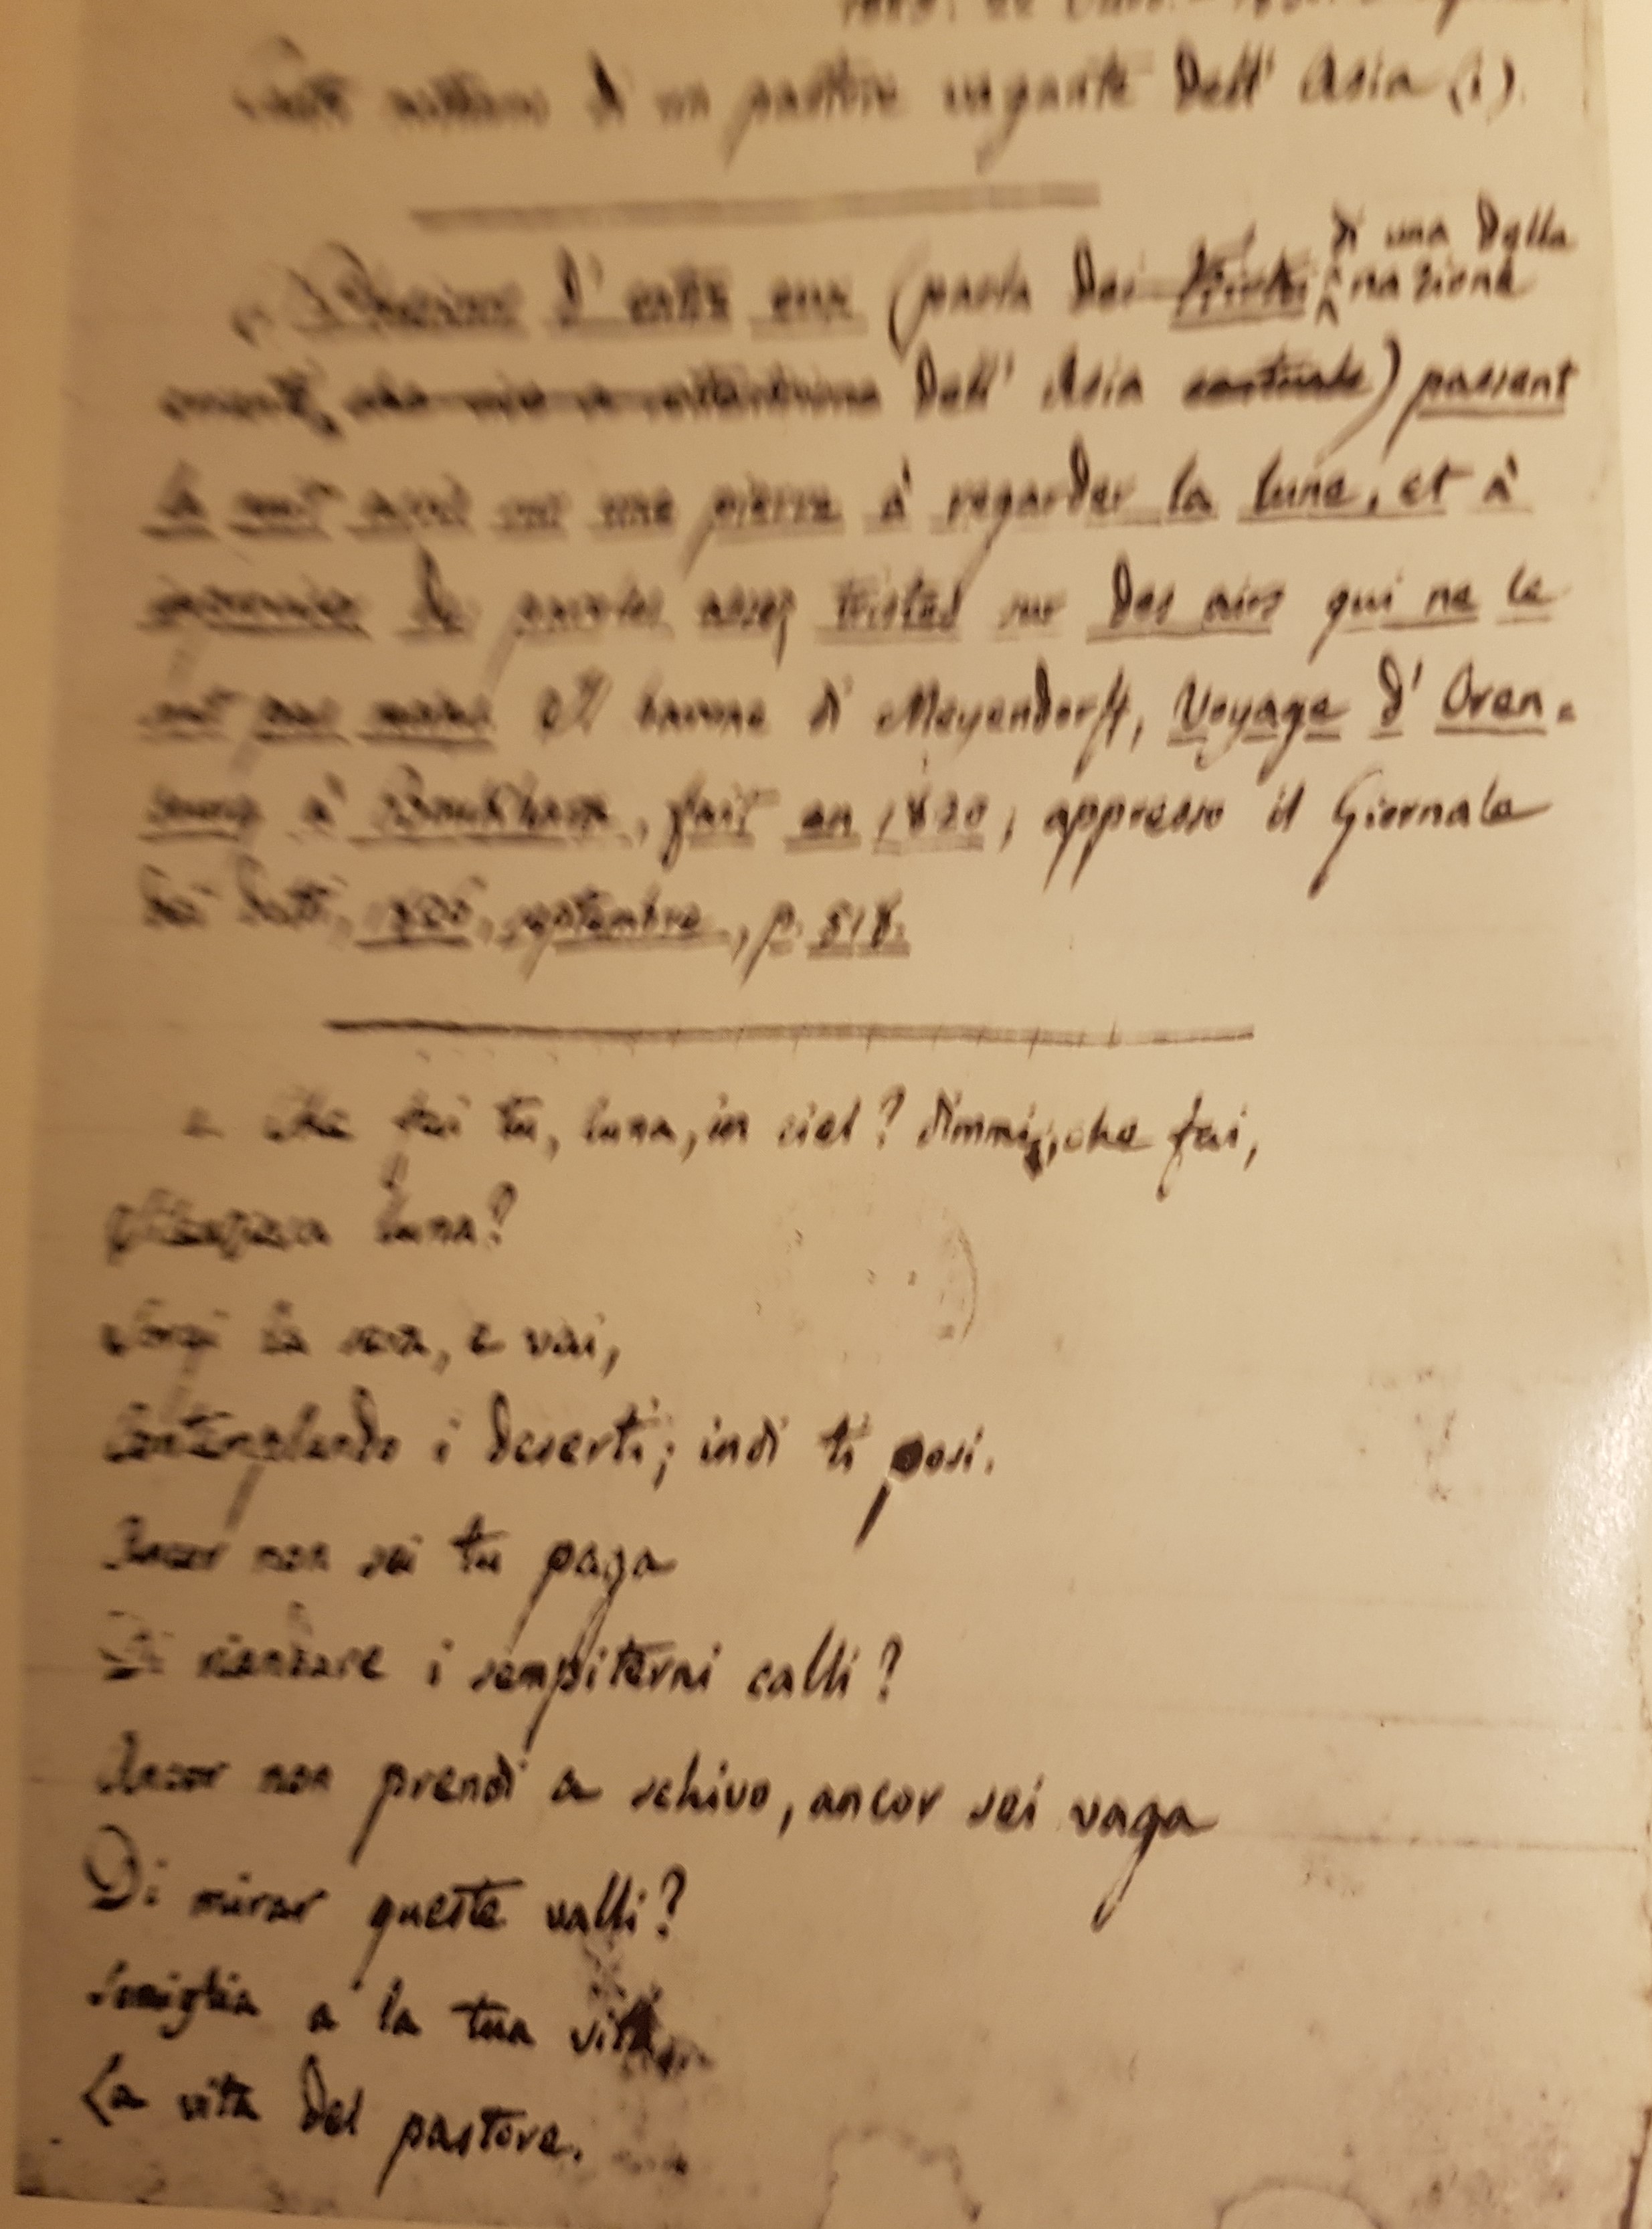 Canto notturno di un pastore vagante dell' Asia (1).
(1) Plusieurs d'entre eux (parla dei Kirkki di una delle nazione
erranti, che sono a settentrione dell' Asia centrale) passent
la nuit assis sur une pierre à regarder la lune, et à
improviser des paroles assez tristes sur des airs qui ne le
sont pas moins. Il barone di Meyendorff, Voyage d' Oren-
bourg à Boukhara, fait en 1820, appresso il Giornale
dei Dotti, 1826, septembre, p. 518.
Che fai tu, luna, in ciel? dimmi, che fai,
Silenziosa luna?
Sorgi la sera, e vai,
Contemplando i deserti; indi ti posi.
Ancor non sei tu paga
Di riandare i sempiterni calli?
Ancor non prendi a schivo, ancor sei vaga
Di mirar queste valli?
Somiglia a la tua vita
La vita del pastore.